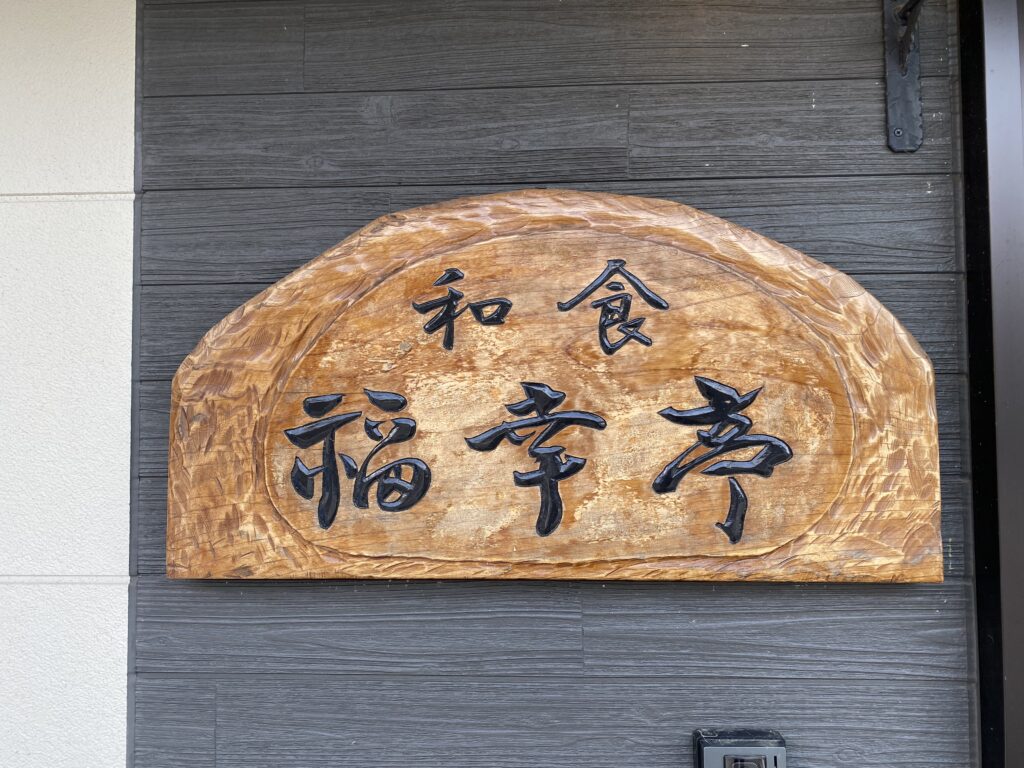 和食
福幸亭